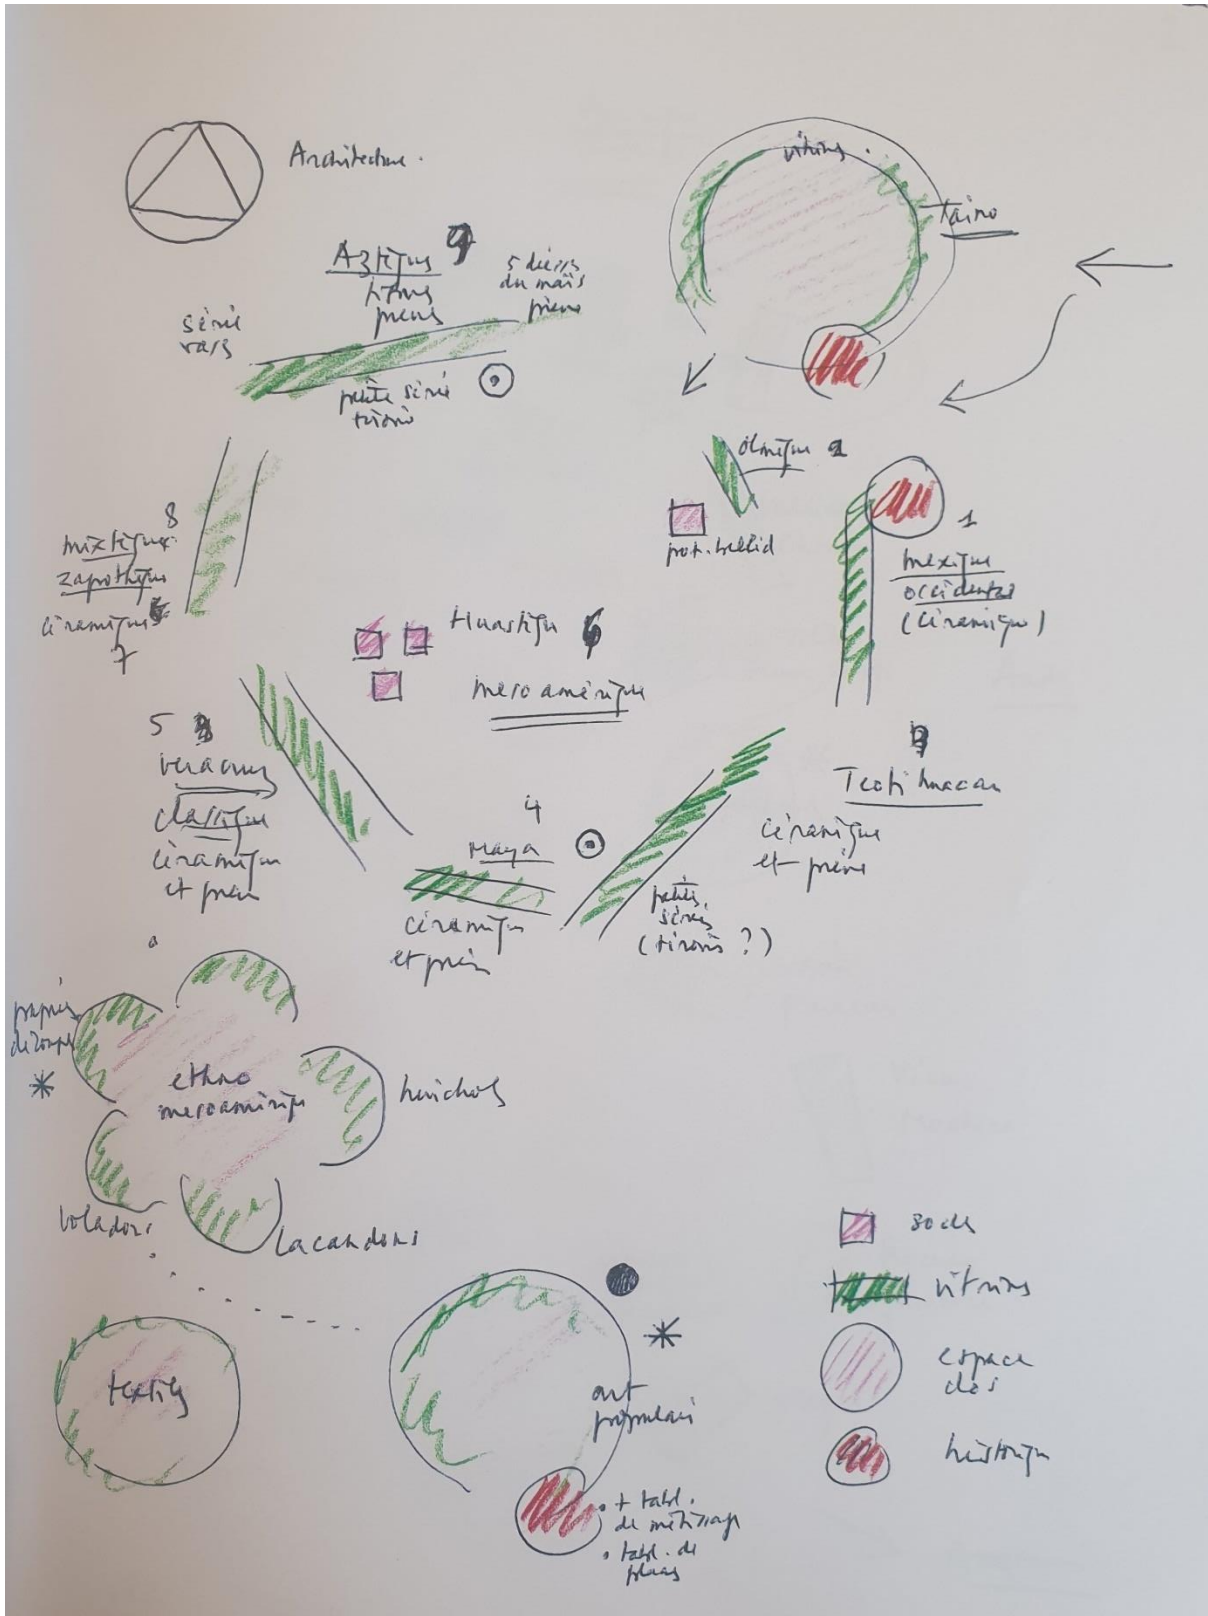 Architecture.
vitrines.
Taino
Aztèques 9
titres
pierres
5 
du maïs
pierre
série
vases
petite série
tiroirs
Olmèque 2
1
mexique
occidental
(céramique)
8
mixtèque
zapothèque
céramique
7
Huastèque 6
meso amérique
5
veracruz
classique
céramique
et pierre
4
Maya
céramique
et pierre
3
Teotihuacan
céramique
et pierre
petites
séries
(tiroirs ?)
papiers
découpés
ethno
mesoamérique
huichols
voladors
Lacandons
textiles
art
populaire
• + tabl.
de métissage
• tabl. de
socle
vitrines
espace
clos
historique